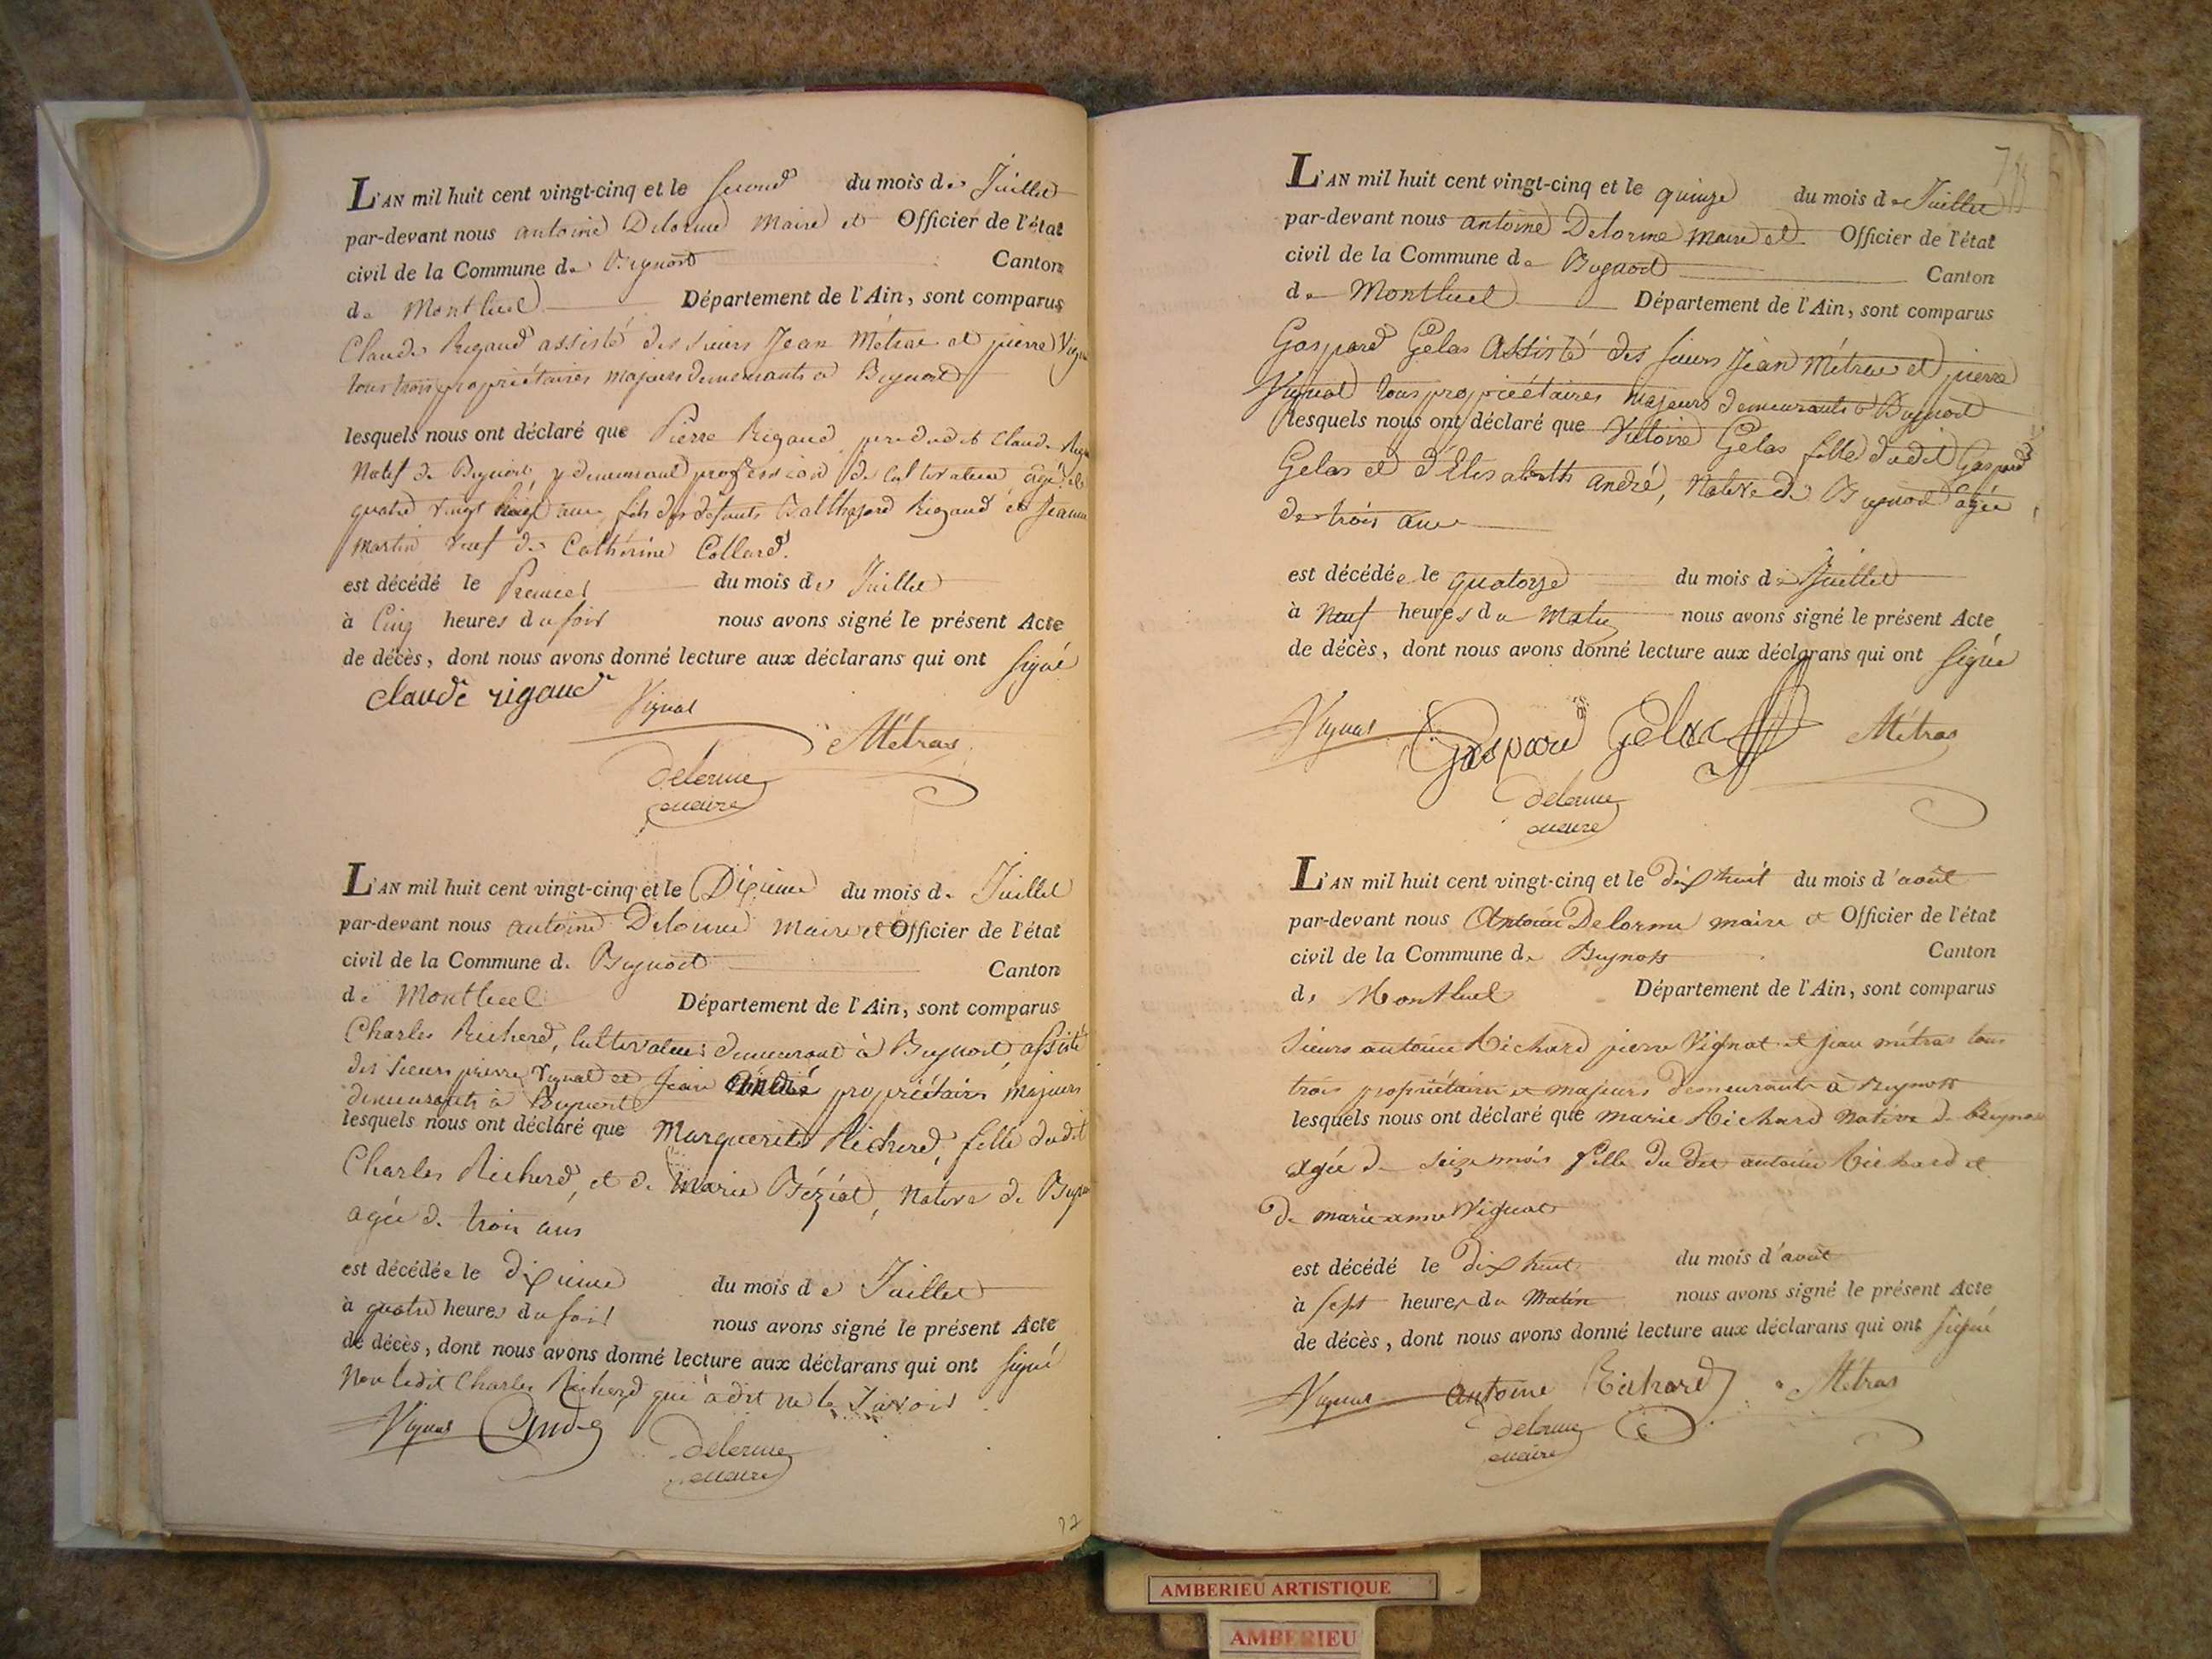 L'AN mil huit cent vingt-cinq et le second du mois de Juillet
par-devant nous antoine Delorme Maire et Officier de l'état
civil de la Commune de Beynost Canton
de Montluel Département de l'Ain, sont comparus
Claude Rigaud assisté des sieurs Jean Métras et pierre Vign
tous trois propriétaires majeurs demeurants à Beynost
lesquels nous ont déclaré que Pierre Rigaud pere dudit Claude Riga
Natif de Beynost, y demeurant profession de cultivateur, agé de
quatre vingt ans, fils des défunts Balthazard Rigaud et Jeanne
Martin veuf de Cathérine Collard.
est décédé le Premier du mois de Juillet
à Cinq heures du soir nous avons signé le présent Acte
de décès, dont nous avons donné lecture aux déclarans qui ont signé
claude rigaud Vignat
Métras
delorme
maire
L'AN mil huit cent vingt-cinq et le Dixieme du mois de Juillet
par-devant nous antoine Delorme Maire et Officier de l'état
civil de la Commune de Beynost Canton
de Montluel Département de l'Ain, sont comparus
Charles Richerd, Cultivateur demeurant à Beynost assisté
des sieurs pierre Vignat et Jean André propriétaires majeurs
demeurants à Beynost
lesquels nous ont déclaré que Marguerite Richerd, fille dudit
Charles Richerd, et de Marie Béziat, Native de Beyn
agée de trois ans
est décédée le dixieme du mois de Juillet
à quatre heures du soir nous avons signé le présent Acte
de décès, dont nous avons donné lecture aux déclarans qui ont signé
Non ledit Charles Richerd qui a dit ne le savoir
Vignat André
delorme
maire
77
L'AN mil huit cent vingt-cinq et le quinze du mois de Juillet
par-devant nous antoine Delorme maire et Officier de l'état
civil de la Commune de Beynost Canton
de Montluel Département de l'Ain, sont comparus
Gaspard Gelas Assisté des sieurs Jean Métras et pierre
Vignat tous propriétaires majeurs demeurants à Beynost
lesquels nous ont déclaré que Victoire Gelas fille dudit Gaspard
Gelas et d'Elisabeth André, Native de Beynost agée
de trois ans
est décédée le quatorze du mois de Juillet
à Neuf heures du Matin nous avons signé le présent Acte
de décès, dont nous avons donné lecture aux déclarans qui ont signé
Vignat Gaspard Gelas Métras
delorme
maire
L'AN mil huit cent vingt-cinq et le dix huit du mois d'août
par-devant nous Antoine Delorme maire et Officier de l'état
civil de la Commune de Beynost Canton
de Montluel Département de l'Ain, sont comparus
Sieurs antoine Richard pierre Vignat et jean métras tous
trois propriétaires et majeurs demeurants à Beynost
lesquels nous ont déclaré que marie Richard Native de Beynost
agée de seize mois fille du dit antoine Richard et
de marie anne Vignat
est décédé le dix huit du mois d'août
à sept heures du Matin nous avons signé le présent Acte
de décès, dont nous avons donné lecture aux déclarans qui ont signé
Vignat antoine Richard Métras
delorme
maire
AMBERIEU ARTISTIQUE
AMBERIEU